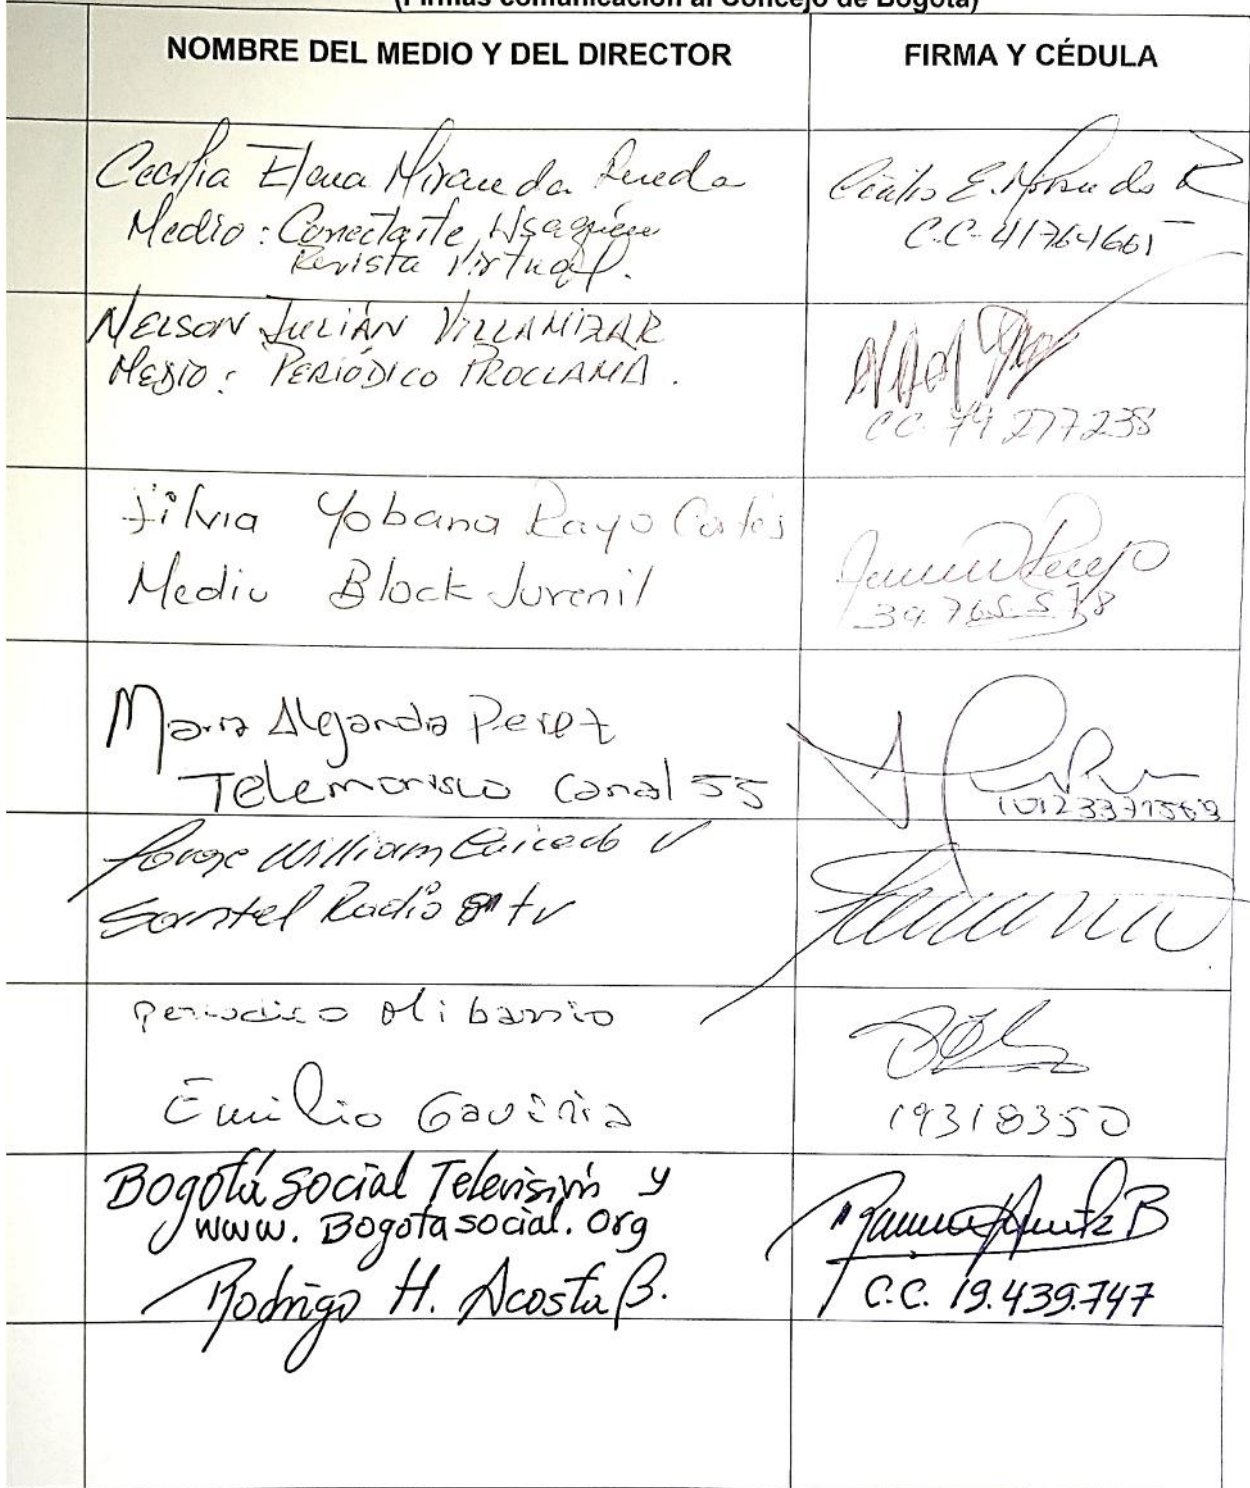 (Firmas comunicación al Concejo de Bogotá)
NOMBRE DEL MEDIO Y DEL DIRECTOR
FIRMA Y CÉDULA
Cecilia Elena Miranda Rueda
Medio: Conectarte Usaquén
Revista Virtual.
C.C. 41764661
NELSON JULIÁN VILLAMIZAR
MEDIO: PERIÓDICO PROCLAMA.
CC. 277238
Silvia Yobana Rayo Cortés
Medio Block Juvenil
39.765.578
Maria Alejandra Perez
Telemorisco Canal 55
Jorge William Caicedo V
Santel Radio tv
periodico Mi barrio
Emilio Gaviria
19318350
Bogotá Social Televisión y
www.Bogotasocial.org
Rodrigo H. Acosta B.
C.C. 19.439.747